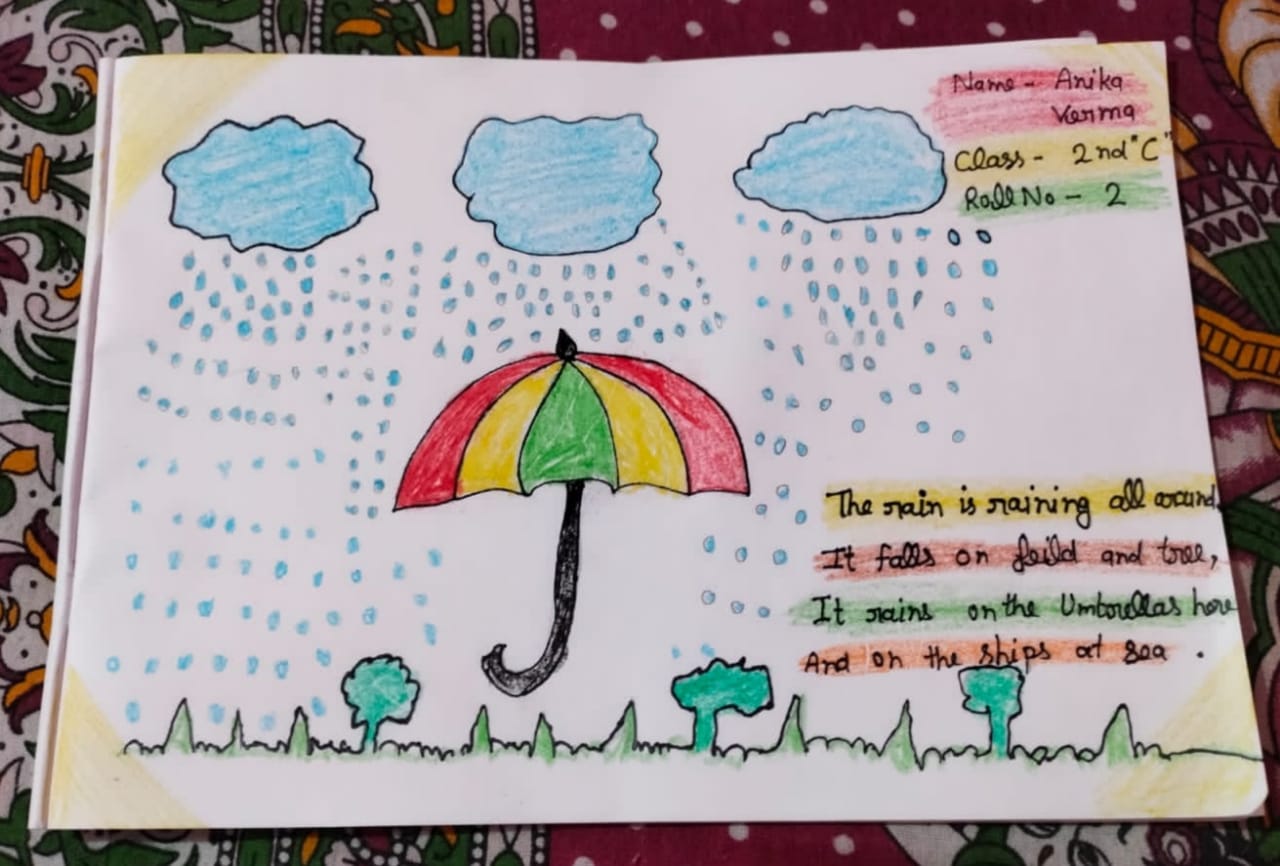 Name - Anika
Verma
Class - 2nd "C"
Roll No - 2
The rain is raining all around,
It falls on feild and tree,
It rains on the Umbrellas here
And on the ships at sea .